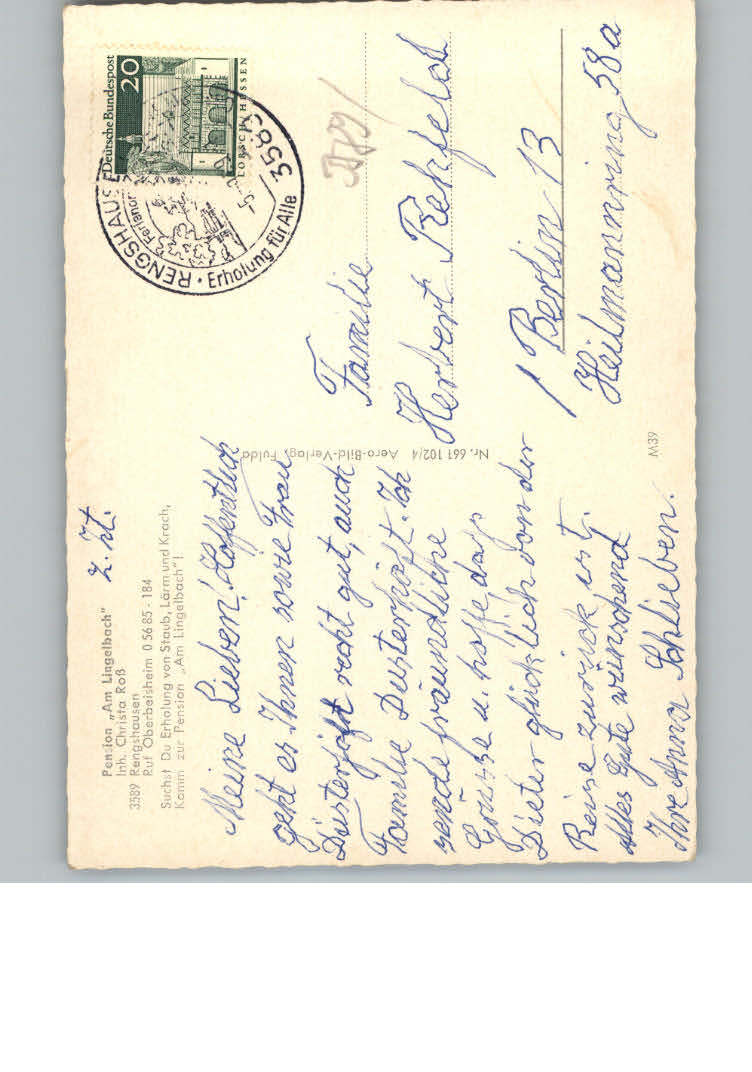 Pension „Am Lingelbach"
Inh. Christa Roß
3589 Rengshausen
Ruf Oberbeisheim 0 56 85 - 184
Suchst Du Erholung von Staub, Lärm und Krach,
Komm zur Pension „Am Lingelbach"!
z. Zt.
Meine Lieben! Hoffentlich
geht es Ihnen sowie Frau
Düsterhöft recht gut, auch
Familie Düsterhöft. Ich
sende freundliche
Grüsse u. hoffe dass
Dieter glücklich von der
Reise zurück ist.
Alles Gute wünschend
Ihre Anna Schlieben.
Nr. 661 102/4 Aero-Bild-Verlag, Fulda
Deutsche Bundespost
20
LORSCH / HESSEN
RENGSHAUSE
3589
Ferienor
Erholung für Alle
Familie
Herbert Rehfeld
1 Berlin 13
Heilmannring 58a
M39